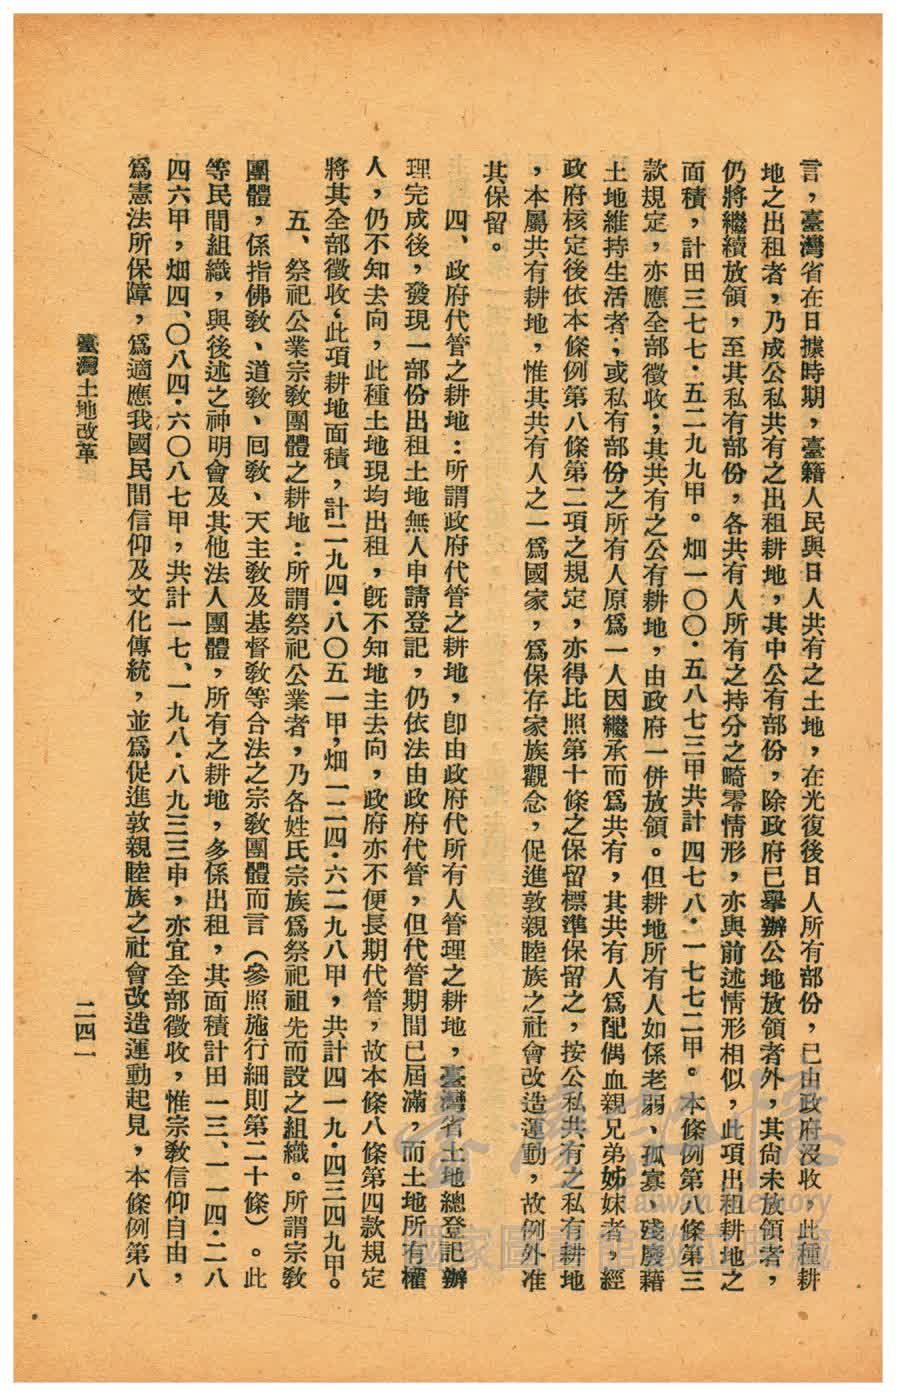 言，臺灣省在日據時期，臺籍人民與日人共有之土地，在光復後日人所有部份，已由政府沒收，此種耕
地之出租者，乃成公私共有之出租耕地，其中公有部份，除政府已舉辦公地放領者外，其尙未放領者，
仍將繼續放領，至其私有部份，各共有人所有之持分之畸零情形，亦與前述情形相似，此項出租耕地之
面積，計田三七七．五二九九甲。畑一〇〇．五八七三甲共計四七八．一七七二甲。本條例第八條第三
款規定，亦應全部徵收；其共有之公有耕地，由政府一併放領。但耕地所有人如係老弱、孤寡、殘廢藉
土地維持生活者；或私有部份之所有人原爲一人因繼承而爲共有，其共有人爲配偶血親兄弟姊妹者，經
政府核定後依本條例第八條第二項之規定，亦得比照第十條之保留標準保留之，按公私共有之私有耕地
，本屬共有耕地，惟其共有人之一爲國家，爲保存家族觀念，促進敦親睦族之社會改造運動，故例外准
其保留。
四、政府代管之耕地：所謂政府代管之耕地，卽由政府代所有人管理之耕地，臺灣省土地總登記辦
理完成後，發現一部份出租土地無人申請登記，仍依法由政府代管，但代管期間已屆滿，而土地所有權
人，仍不知去向，此種土地現均出租，旣不知地主去向，政府亦不便長期代管，故本條八條第四款規定
將其全部徵收，此項耕地面積，計二九四．八〇五一甲，畑一二四．六二九八甲，共計四一九．四三四九甲。
五、祭祀公業宗敎團體之耕地：所謂祭祀公業者，乃各姓氏宗族爲祭祀祖先而設之組織。所謂宗敎
團體，係指佛敎、道敎、囘敎、天主敎及基督敎等合法之宗敎團體而言（參照施行細則第二十條）。此
等民間組織，與後述之神明會及其他法人團體，所有之耕地，多係出租，其面積計田一三、一一四．二八
四六甲，畑四、〇八四．六〇八七甲，共計一七、一九八．八九三三申，亦宜全部徵收，惟宗敎信仰自由，
爲憲法所保障，爲適應我國民間信仰及文化傳統，並爲促進敦親睦族之社會改造運動起見，本條例第八
臺灣土地改革
二四一
臺灣記憶
Taiwan Memory
國家圖書館數位典藏